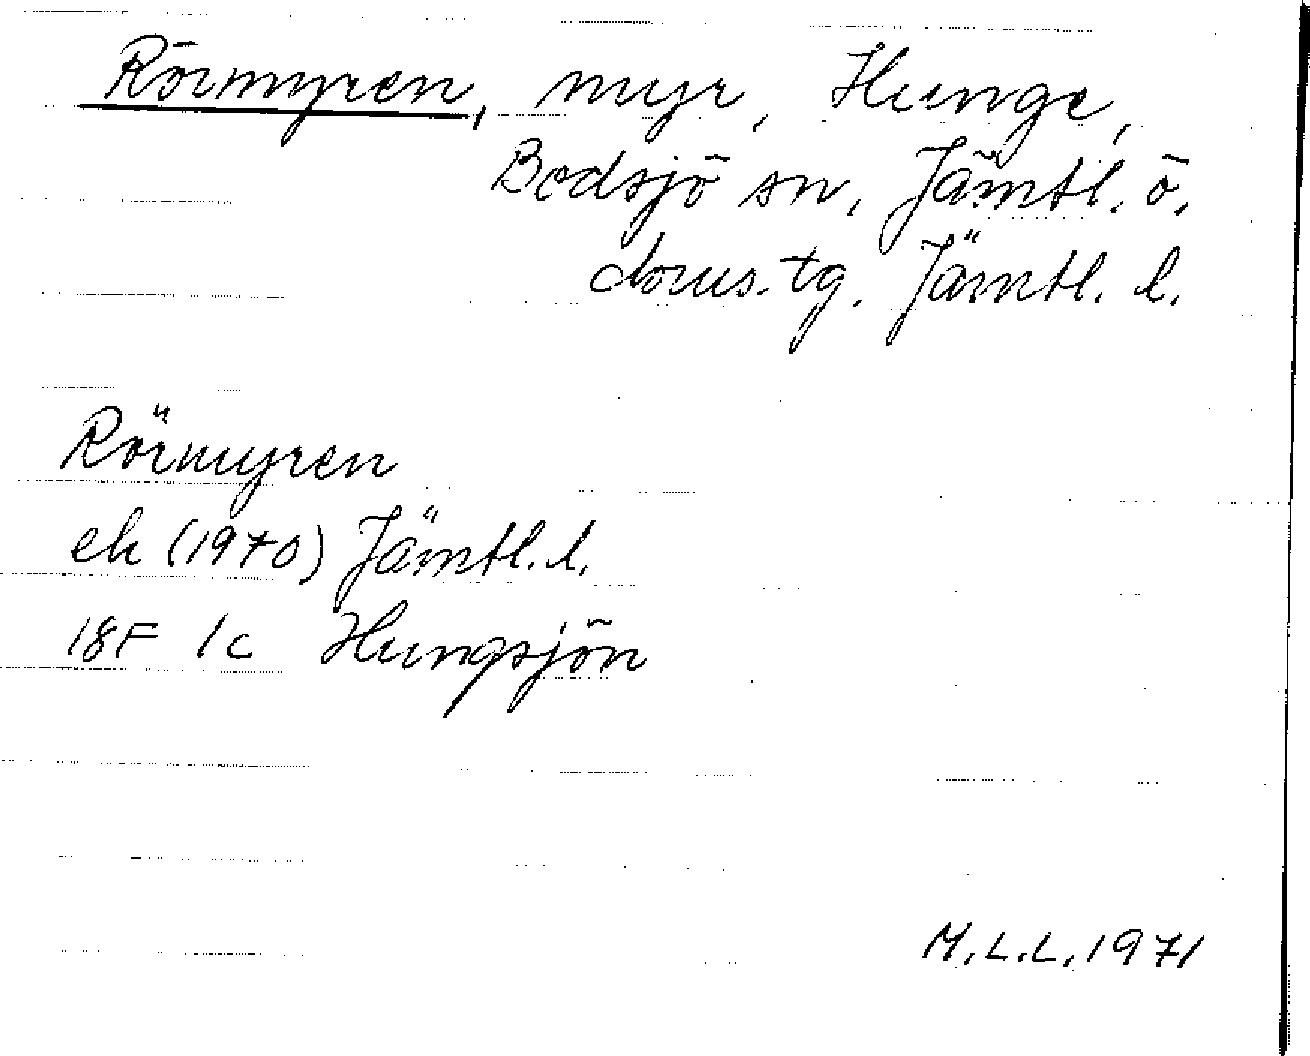 Rörmyren, myr, Hunge,
Bodsjö sn, Jämtl. ö.
doms.tg. Jämtl. l.
Rörmyren
ek (1970) Jämtl. l.
18F 1c Hungsjön
M.L.L. 1971